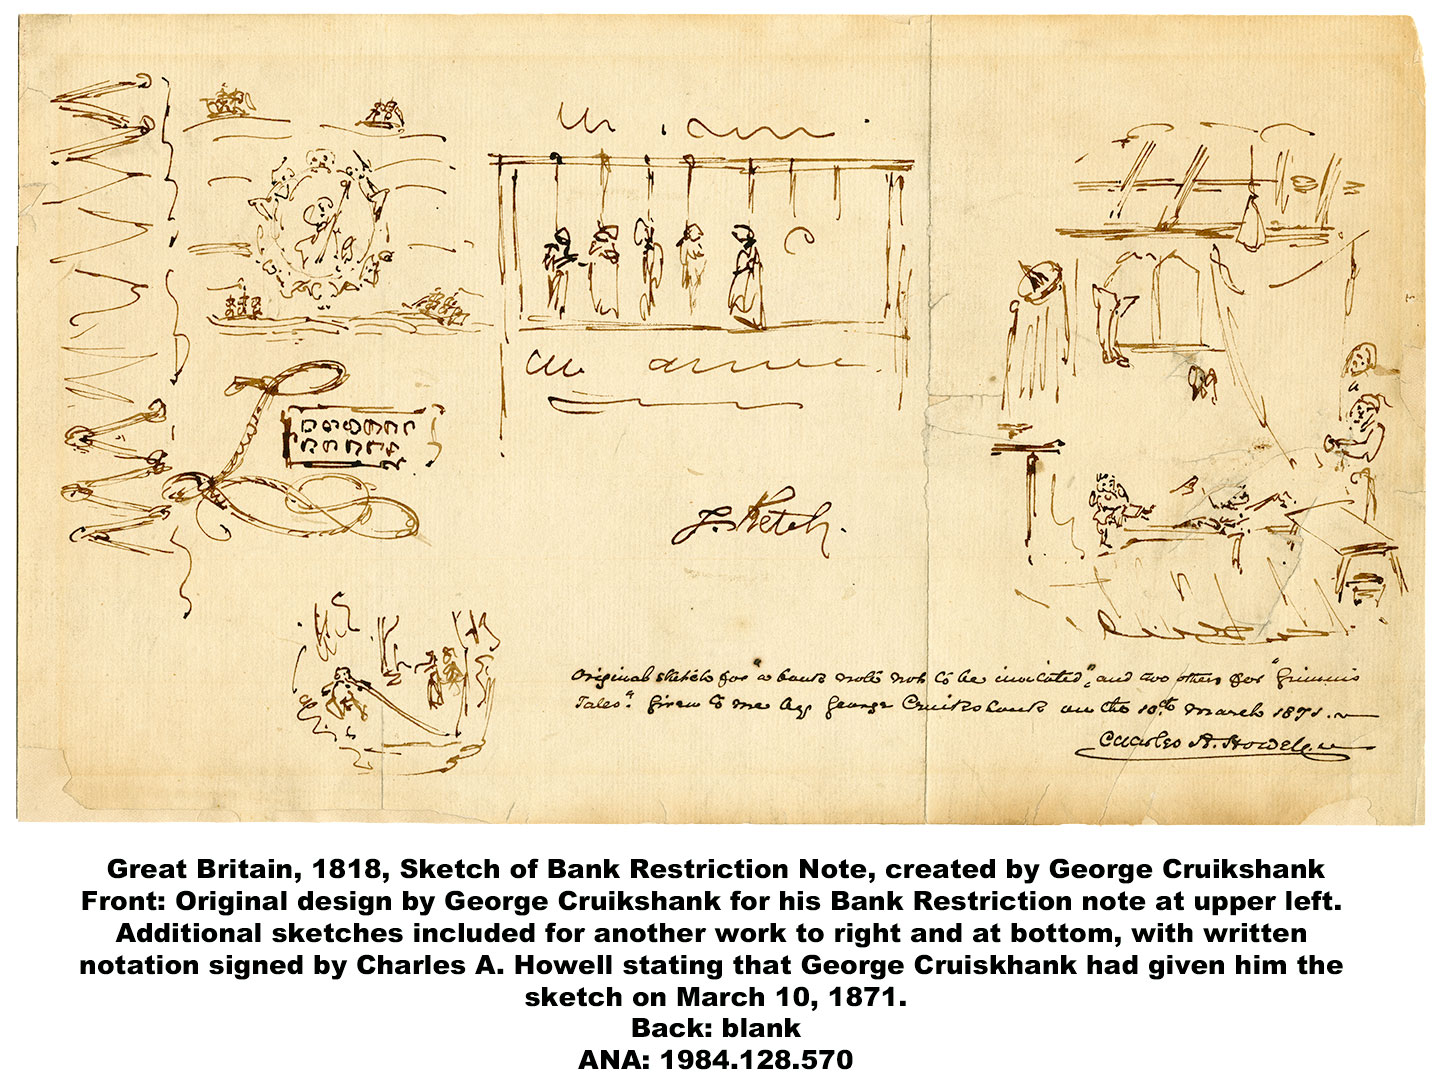 J. Ketch.
Original sketch for "a bank note not to be imitated", and two others for "Grimm's
Tales". Given to me by George Cruikshank on the 10th. March 1871.
Charles A. Howell
Great Britain, 1818, Sketch of Bank Restriction Note, created by George Cruikshank
Front: Original design by George Cruikshank for his Bank Restriction note at upper left.
Additional sketches included for another work to right and at bottom, with written
notation signed by Charles A. Howell stating that George Cruiskhank had given him the
sketch on March 10, 1871.
Back: blank
ANA: 1984.128.570